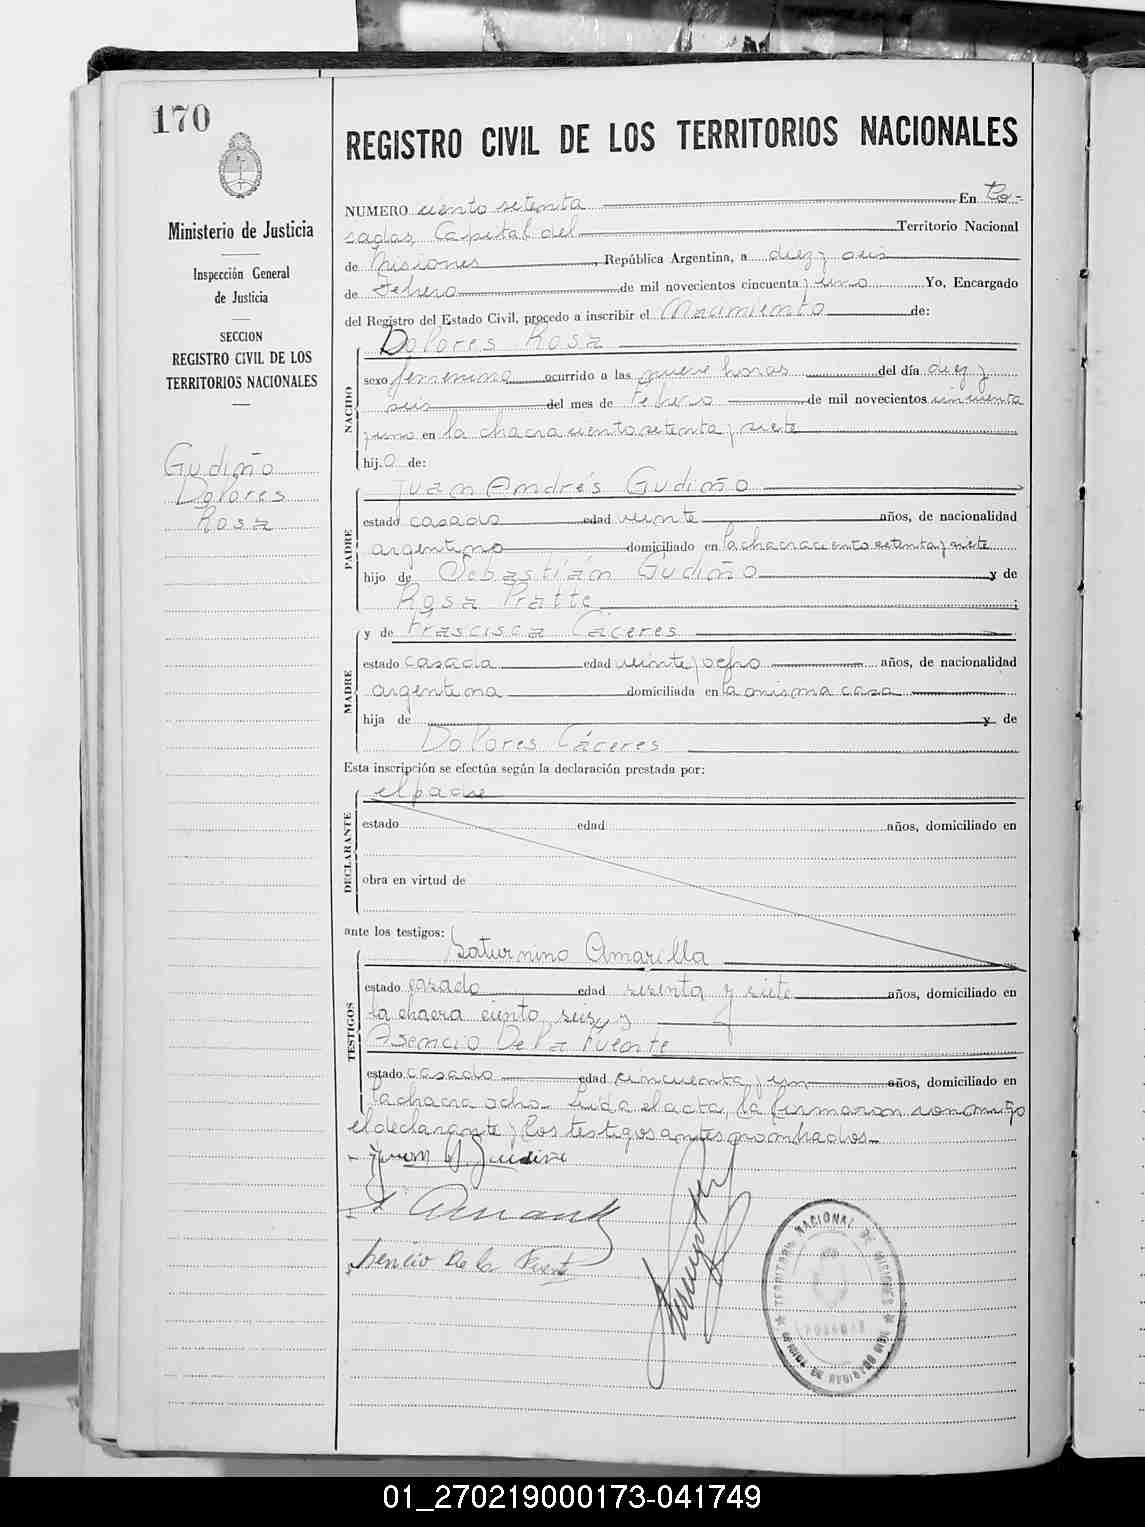 170
REGISTRO CIVIL DE LOS TERRITORIOS NACIONALES
Ministerio de Justicia
Inspección General
de Justicia
SECCION
REGISTRO CIVIL DE LOS
TERRITORIOS NACIONALES
Gudiño
Dolores
Rosa
NUMERO ciento setenta En Po-
sadas Capital del Territorio Nacional
de Misiones, República Argentina, a diez y seis
de Febrero de mil novecientos cincuenta y uno Yo, Encargado
del Registro del Estado Civil, procedo a inscribir el Nacimiento de:
NACIDO
Dolores Rosa
sexo femenino ocurrido a las nueve horas del día diez y
seis del mes de Febrero de mil novecientos cincuenta
y uno en la chacra ciento setenta y siete
hij.o de:
PADRE
Juan Andrés Gudiño
estado casado edad veinte años, de nacionalidad
argentino domiciliado en la chacra ciento setenta y siete
hijo de Sebastián Gudiño y de
Rosa Pratte ;
MADRE
y de Francisca Cáceres
estado casada edad veinte y ocho años, de nacionalidad
argentina domiciliada en la misma casa
hija de y de
Dolores Cáceres
Esta inscripción se efectúa según la declaración prestada por:
DECLARANTE
el padre
estado edad años, domiciliado en
obra en virtud de
ante los testigos:
TESTIGOS
Saturnino Amarilla
estado casado edad sesenta y siete años, domiciliado en
la chacra ciento seis, y
Asencio De la Fuente
estado casado edad cincuenta y un años, domiciliado en
la chacra ocho Leida el acta, la firmaron conmigo
el declarante y los testigos antes nombrados
Juan A Gudiño
Asencio De la Fuente
TERRITORIO NACIONAL DE MISIONES
OFICINA DE REGISTRO CIVIL
01_270219000173-041749